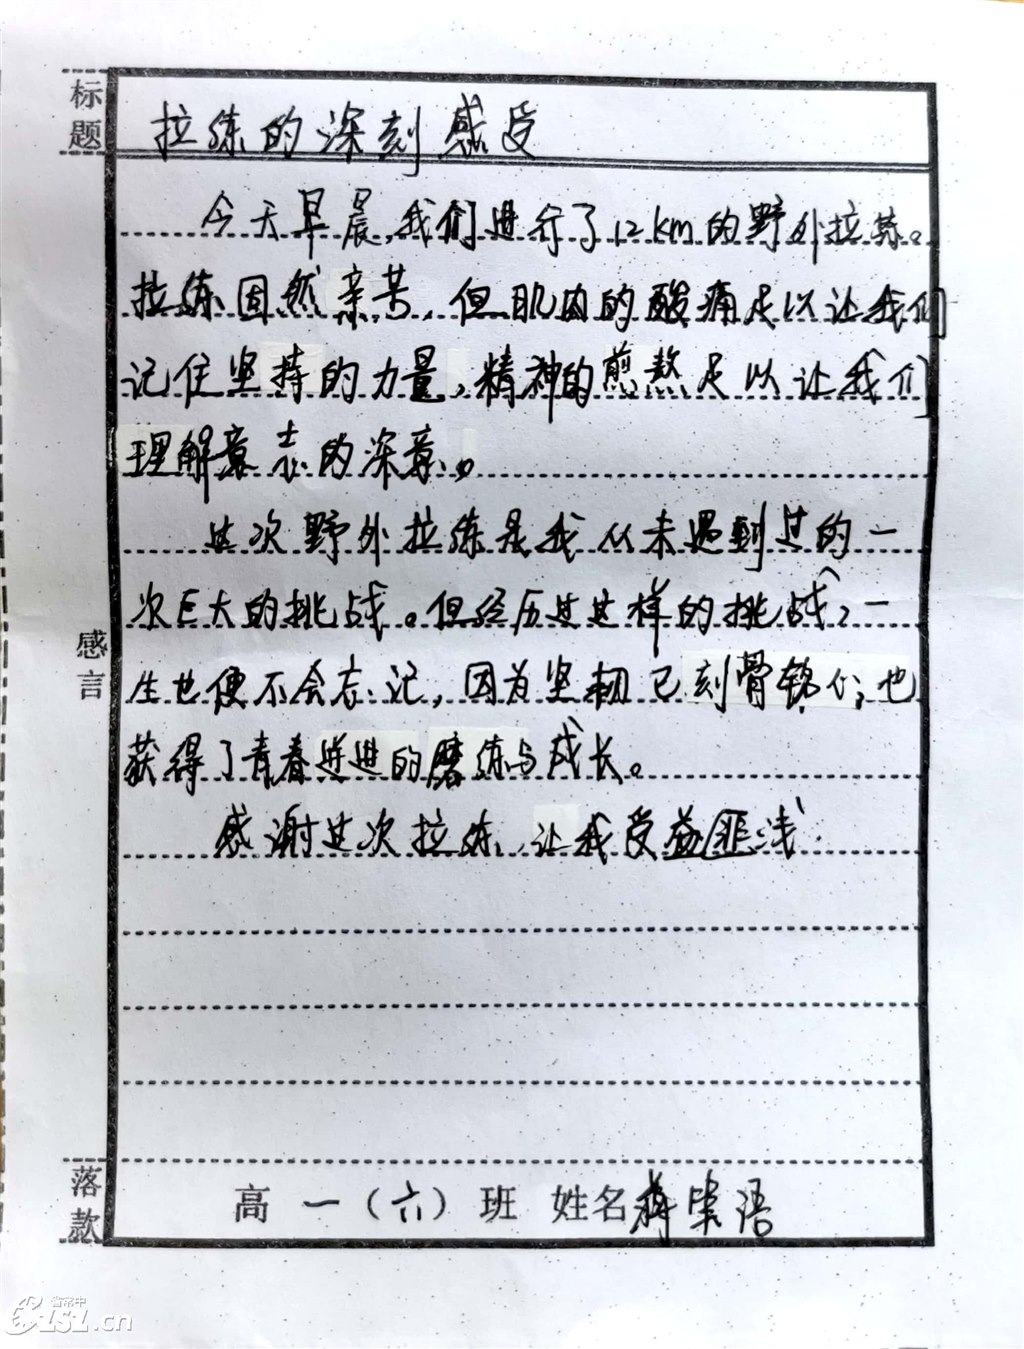 标题
拉练的深刻感受
今天早晨,我们进行了12km的野外拉练。
拉练固然亲苦,但肌肉的酸痛足以让我们
记住坚持的力量,精神的煎熬足以让我们
理解意志的深意。
这次野外拉练是我从未遇到过的一
次巨大的挑战。但经历过这样的挑战,一
生也便不会忘记,因为坚韧已刻骨铭心;也
获得了青春迸进的磨练与成长。
感谢这次拉练,让我受益匪浅.
感言
落款
高一(六)班 姓名蒋 语
省常中
CZ1Z1.cn